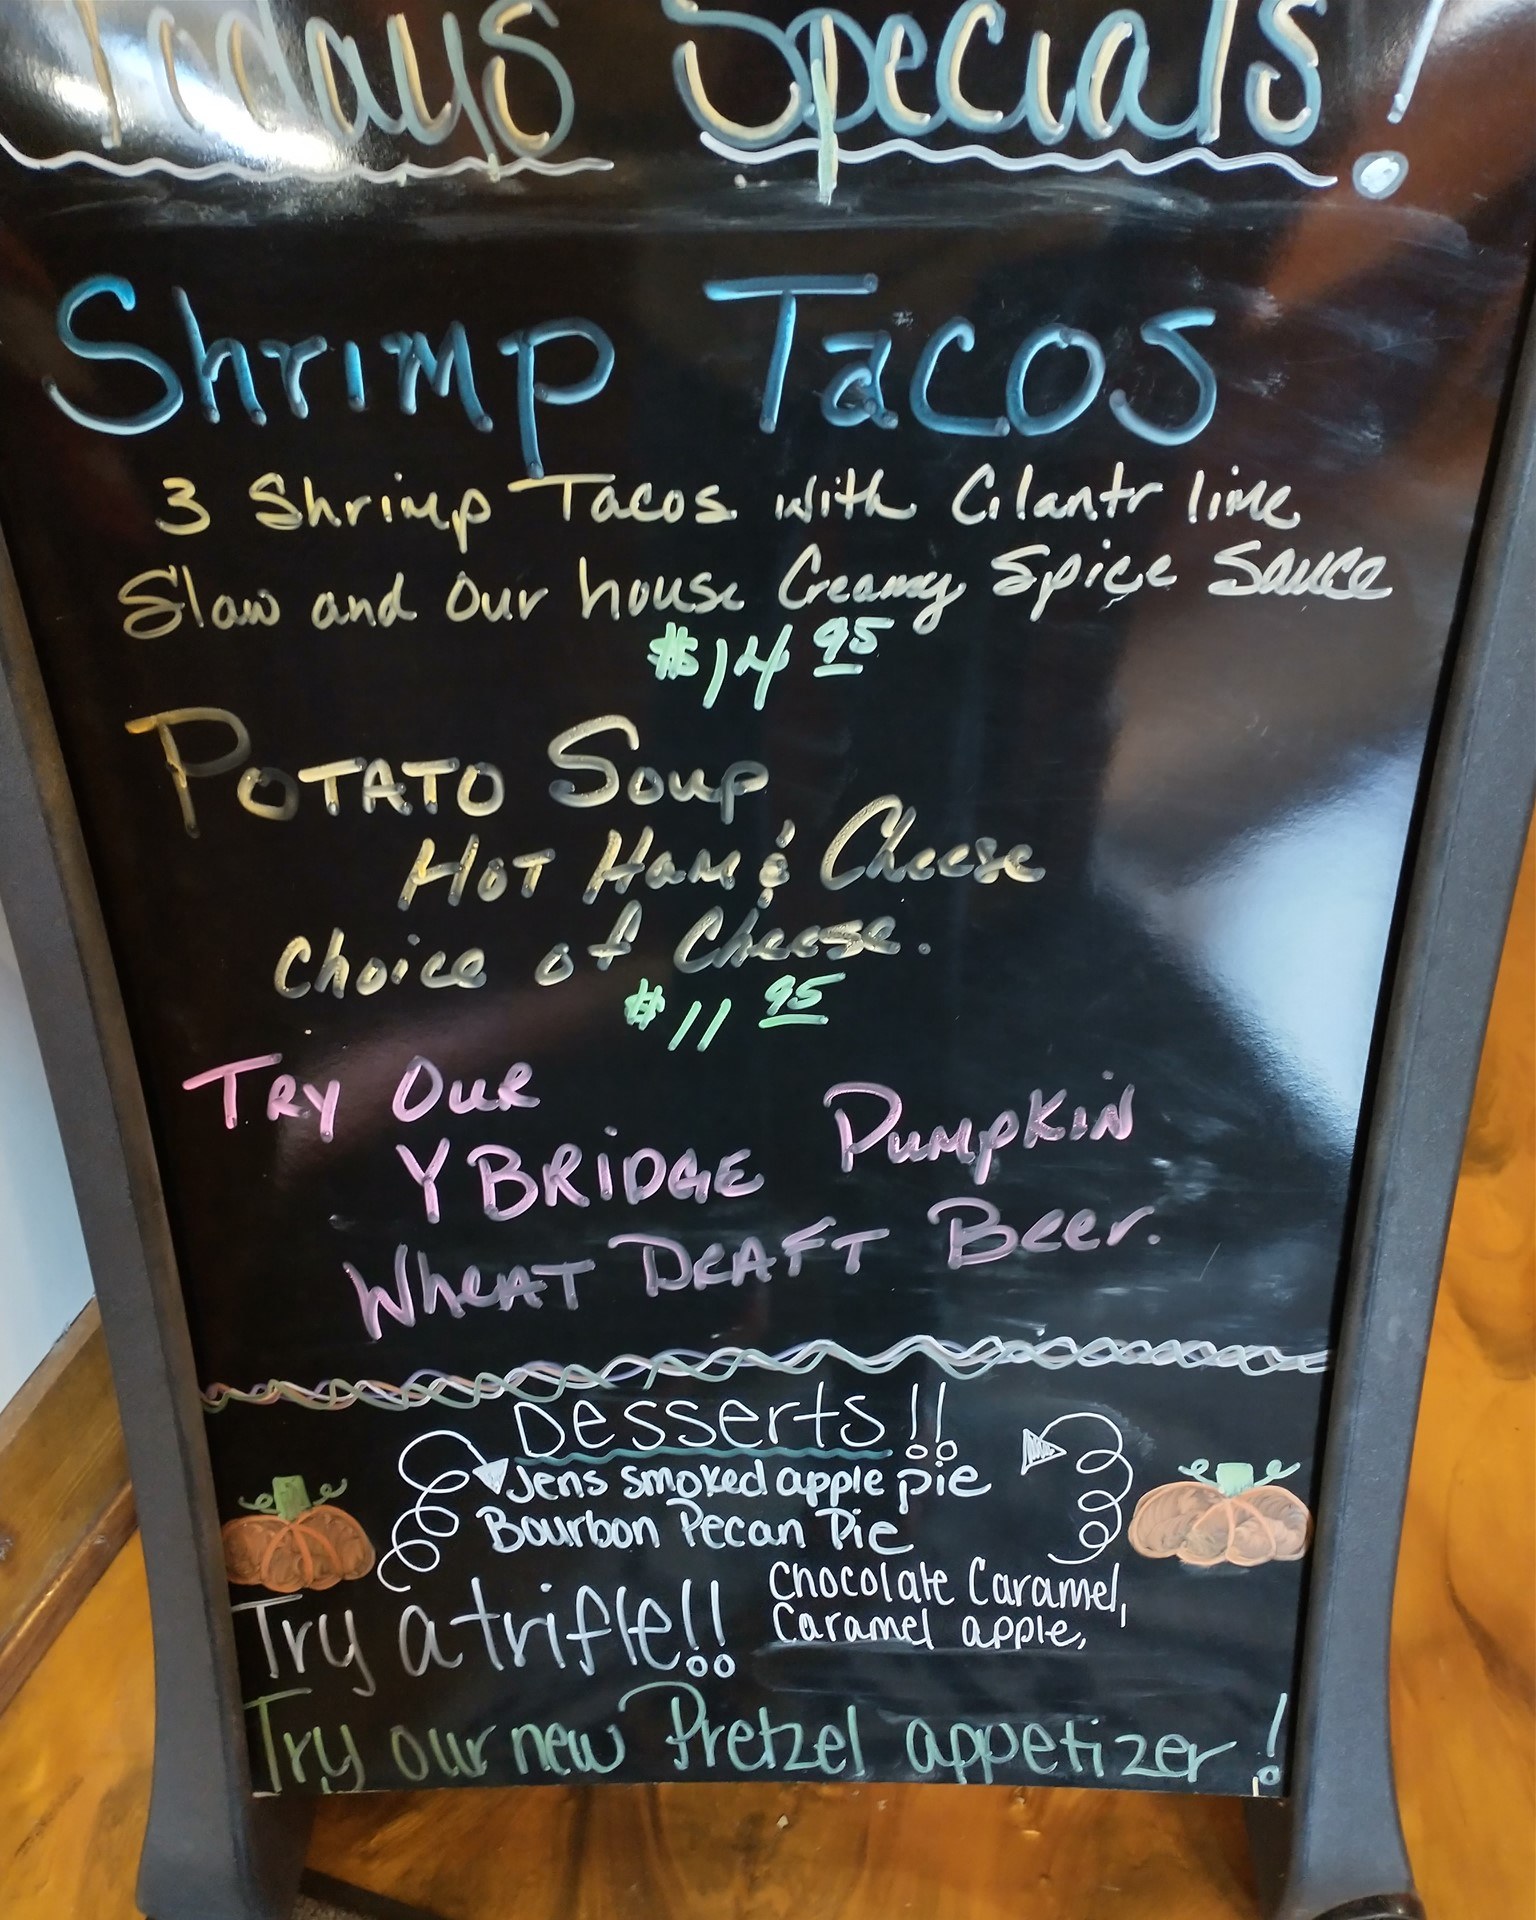 Todays Specials!
Shrimp Tacos
3 Shrimp Tacos with Cilantr lime
Slaw and our house Creamy Spice Sauce
$14 95
Potato Soup
Hot Ham & Cheese
Choice of Cheese.
$11 95
Try Our
Y BRiDGE Pumpkin
Wheat Draft Beer.
Desserts!!
Jens smoked apple pie
Bourbon Pecan Pie
Try a trifle!! Chocolate Caramel,
Caramel apple,
Try our new Pretzel appetizer!